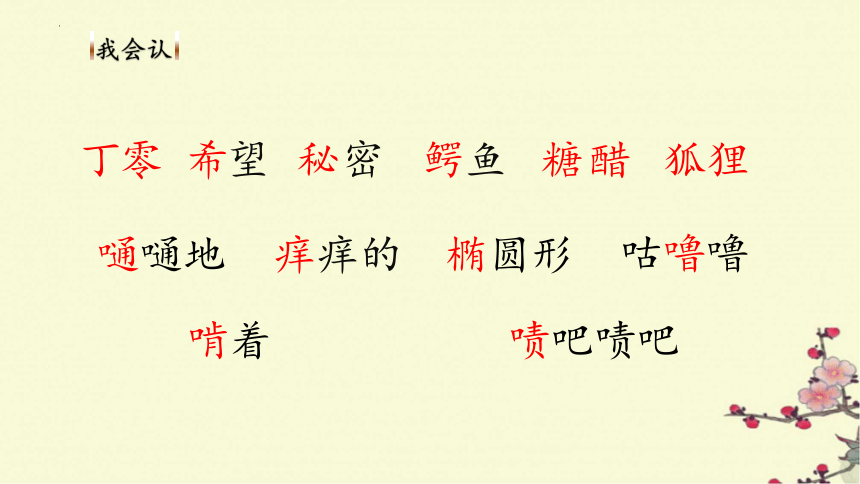 我会认
丁零 希望 秘密 鳄鱼 糖醋 狐狸
嗵嗵地 痒痒的 椭圆形 咕噜噜
啃着 啧吧啧吧